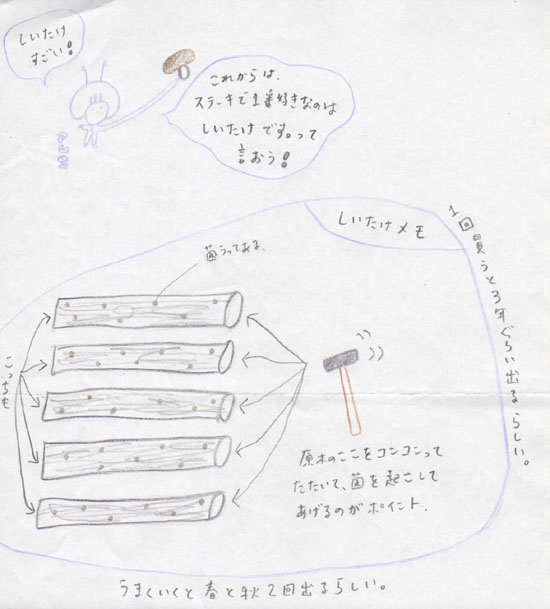 しいたけ
すごい!
これからは、
ステーキで1番好きなのは
しいたけです。って
言おう!
しいたけメモ
1回買うと3年ぐらい出るらしい。
菌うってある。
こっちも
原木のここをコンコンって
たたいて、菌を起こして
あげるのがポイント.
うまくいくと春と秋2回出るらしい。